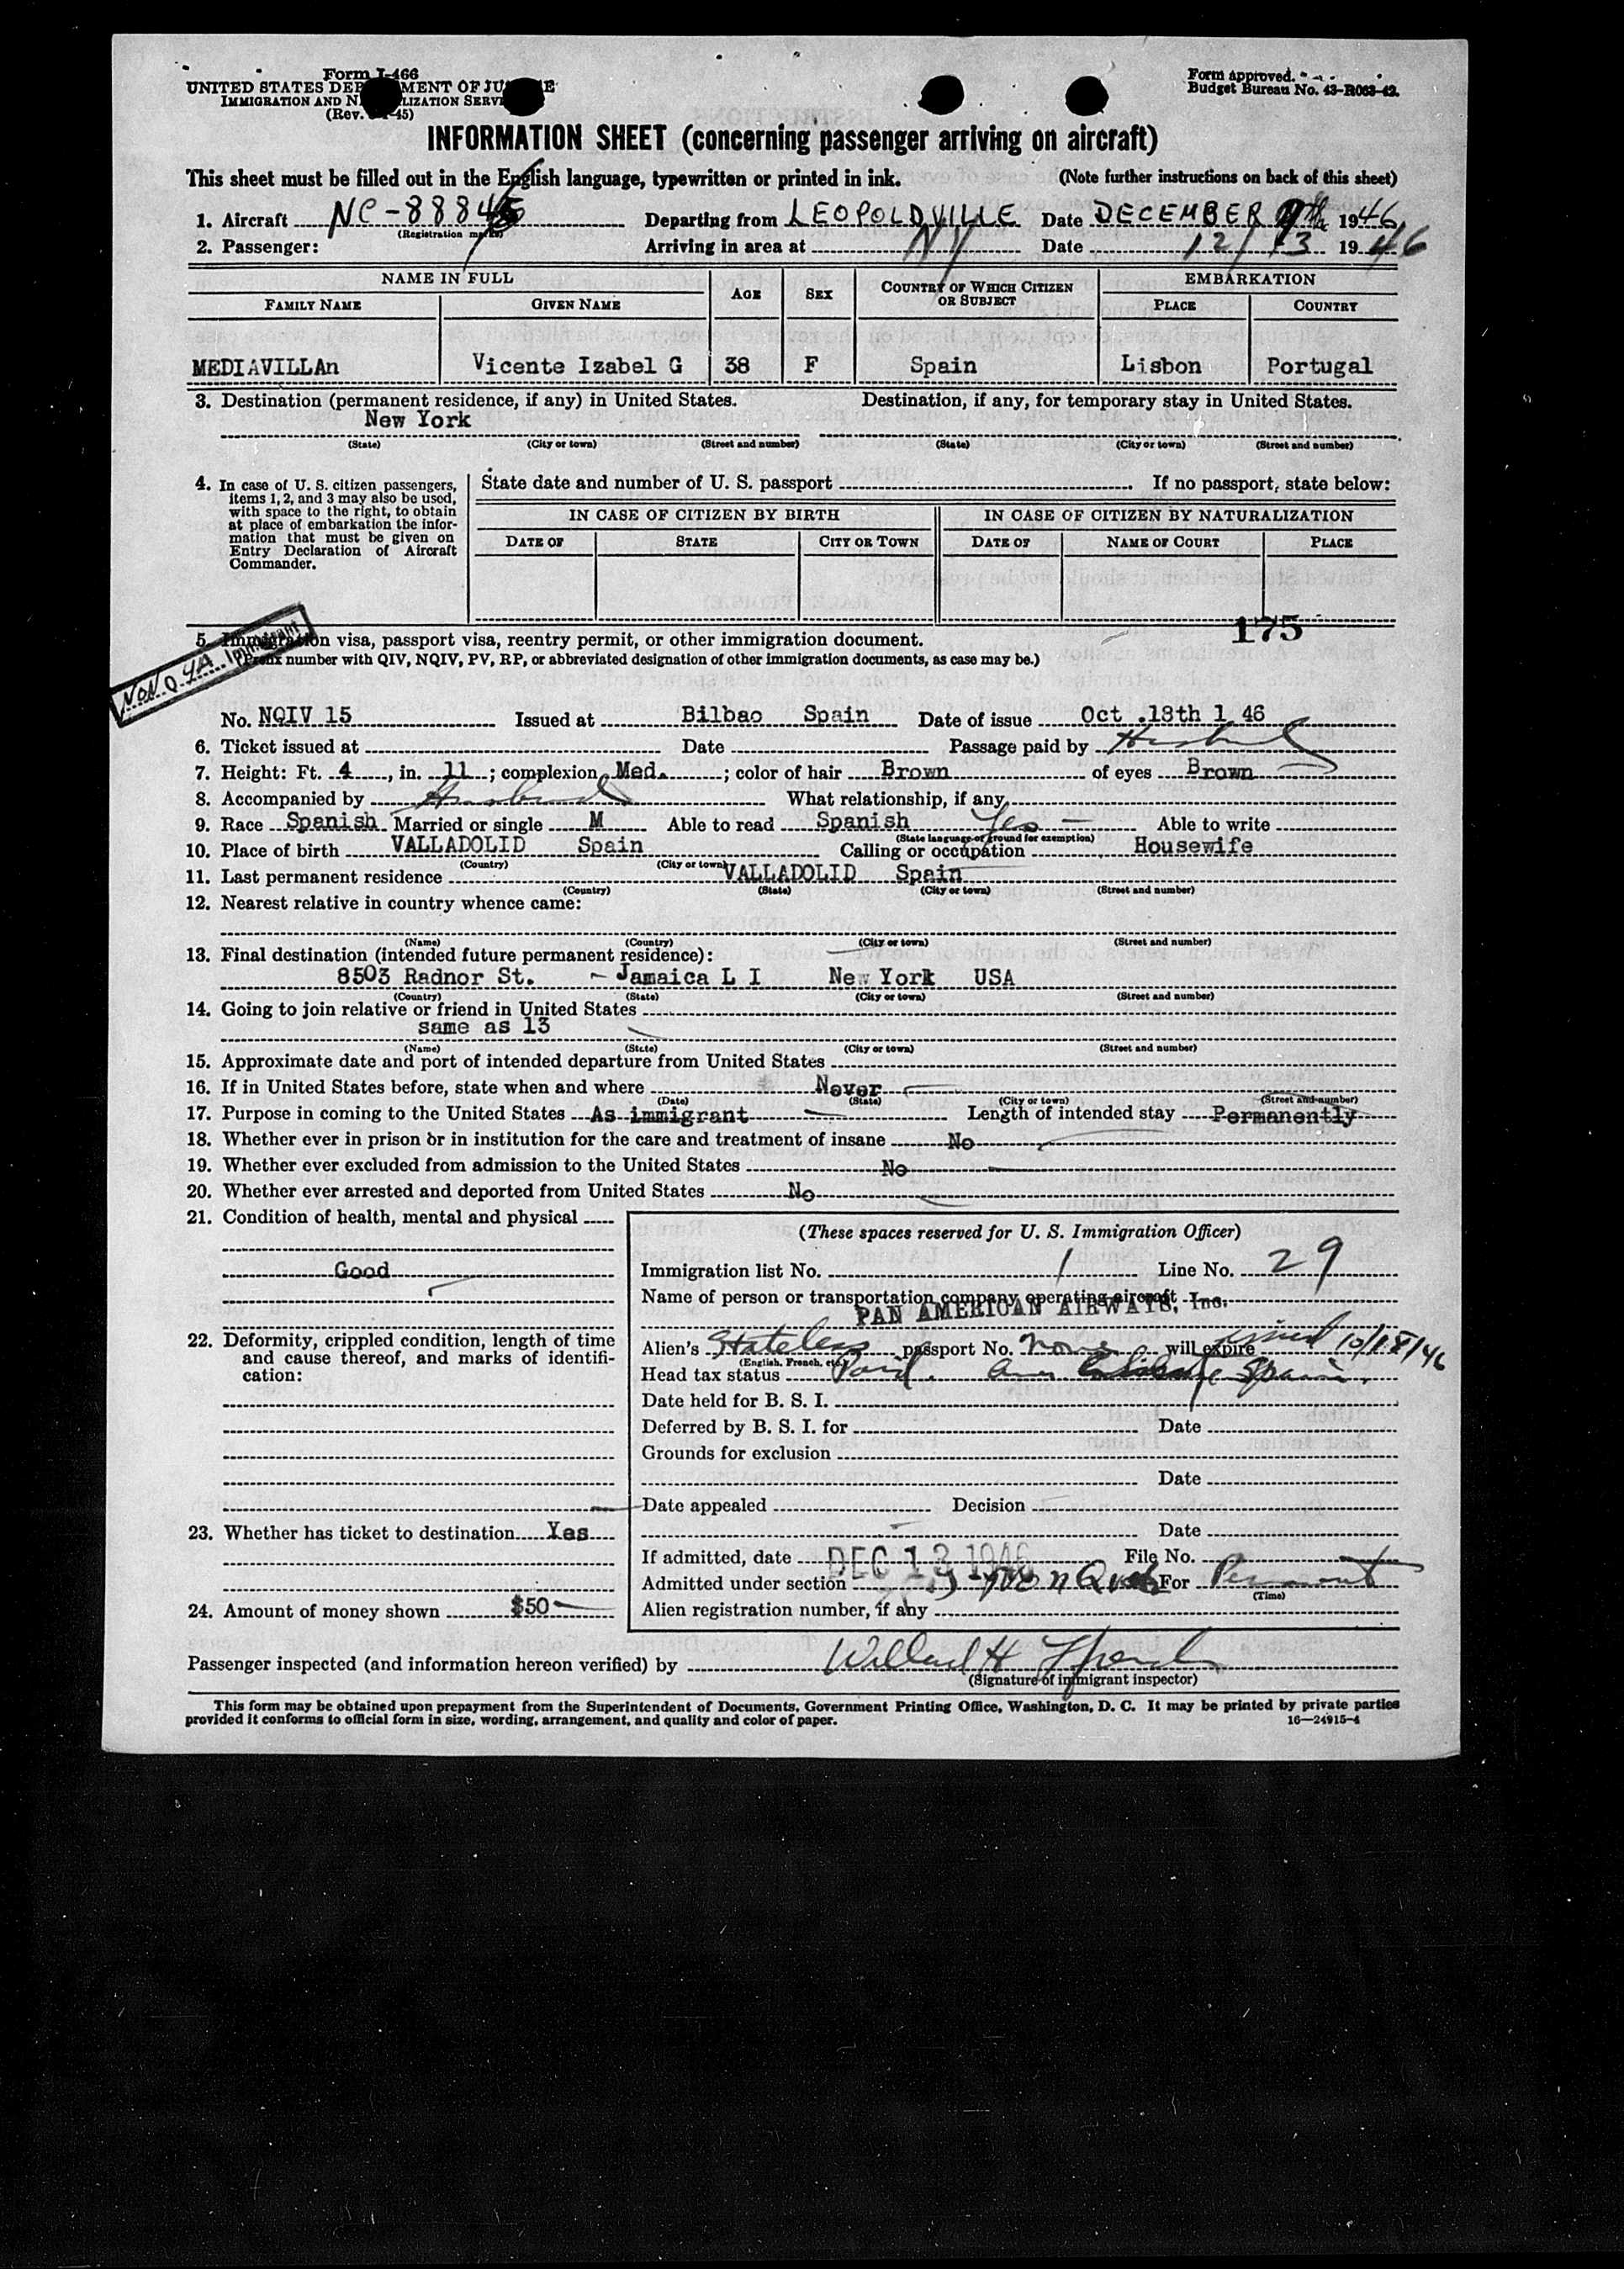 Form I-466
UNITED STATES DEP MENT OF JU E
IMMIGRATION AND N LIZATION SERVI
(Rev. -45)
Form approved.
Budget Bureau No. 43-R063-42.
INFORMATION SHEET (concerning passenger arriving on aircraft)
This sheet must be filled out in the English language, typewritten or printed in ink. (Note further instructions on back of this sheet)
1. Aircraft NC-8884 Departing from LEOPOLDVILLE Date DECEMBER 9th 1946
(Registration marks)
2. Passenger: Arriving in area at NY Date 12/13 1946
NAME IN FULL AGE SEX COUNTRY OF WHICH CITIZEN OR SUBJECT EMBARKATION
FAMILY NAME GIVEN NAME PLACE COUNTRY
MEDIAVILLAn Vicente Izabel G 38 F Spain Lisbon Portugal
3. Destination (permanent residence, if any) in United States. Destination, if any, for temporary stay in United States.
New York
(State) (City or town) (Street and number) (State) (City or town) (Street and number)
4. In case of U. S. citizen passengers,
items 1, 2, and 3 may also be used,
with space to the right, to obtain
at place of embarkation the infor-
mation that must be given on
Entry Declaration of Aircraft
Commander.
State date and number of U. S. passport If no passport, state below:
IN CASE OF CITIZEN BY BIRTH IN CASE OF CITIZEN BY NATURALIZATION
DATE OF STATE CITY OR TOWN DATE OF NAME OF COURT PLACE
175
5. Immigration visa, passport visa, reentry permit, or other immigration document.
(Prefix number with QIV, NQIV, PV, RP, or abbreviated designation of other immigration documents, as case may be.)
Non Q 4A Immigrant
No. NQIV 15 Issued at Bilbao Spain Date of issue Oct .18th 1 46
6. Ticket issued at Date Passage paid by Husband
7. Height: Ft. 4, in. 11; complexion Med.; color of hair Brown of eyes Brown
8. Accompanied by Husband What relationship, if any
9. Race Spanish Married or single M Able to read Spanish Yes Able to write
(State language or ground for exemption)
10. Place of birth VALLADOLID Spain Calling or occupation Housewife
(Country) (City or town)
11. Last permanent residence VALLADOLID Spain
(Country) (State) (City or town) (Street and number)
12. Nearest relative in country whence came:
(Name) (Country) (City or town) (Street and number)
13. Final destination (intended future permanent residence):
8503 Radnor St. - Jamaica L I New York USA
(Country) (State) (City or town) (Street and number)
14. Going to join relative or friend in United States
same as 13
(Name) (State) (City or town) (Street and number)
15. Approximate date and port of intended departure from United States
16. If in United States before, state when and where Never
(Date) (State) (City or town) (Street and number)
17. Purpose in coming to the United States As immigrant Length of intended stay Permanently
18. Whether ever in prison or in institution for the care and treatment of insane No
19. Whether ever excluded from admission to the United States No
20. Whether ever arrested and deported from United States No
21. Condition of health, mental and physical
Good
22. Deformity, crippled condition, length of time
and cause thereof, and marks of identifi-
cation:
23. Whether has ticket to destination Yes
24. Amount of money shown $50
(These spaces reserved for U. S. Immigration Officer)
Immigration list No. 1 Line No. 29
Name of person or transportation company operating aircraft
PAN AMERICAN AIRWAYS, Inc.
Alien's Stateless passport No. None will expire issued 10/18/46
(English, French, etc.)
Head tax status Paid. Spain.
Date held for B. S. I.
Deferred by B. S. I. for Date
Grounds for exclusion
Date
Date appealed Decision
Date
If admitted, date DEC 13 1946 File No.
Admitted under section Non Quota For Permanent
(Time)
Alien registration number, if any
Passenger inspected (and information hereon verified) by Willard H
(Signature of immigrant inspector)
This form may be obtained upon prepayment from the Superintendent of Documents, Government Printing Office, Washington, D. C. It may be printed by private parties
provided it conforms to official form in size, wording, arrangement, and quality and color of paper. 16—24915-4